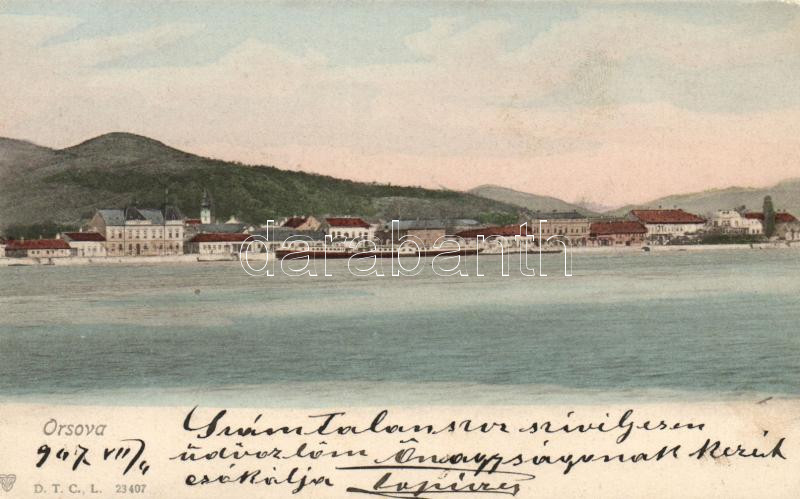 darabanth
Orsova
907. VII/4
Számtalanszor szívélyesen
üdvözlöm Önagyságonak kezét
csókolja
D. T. C., L. 23407